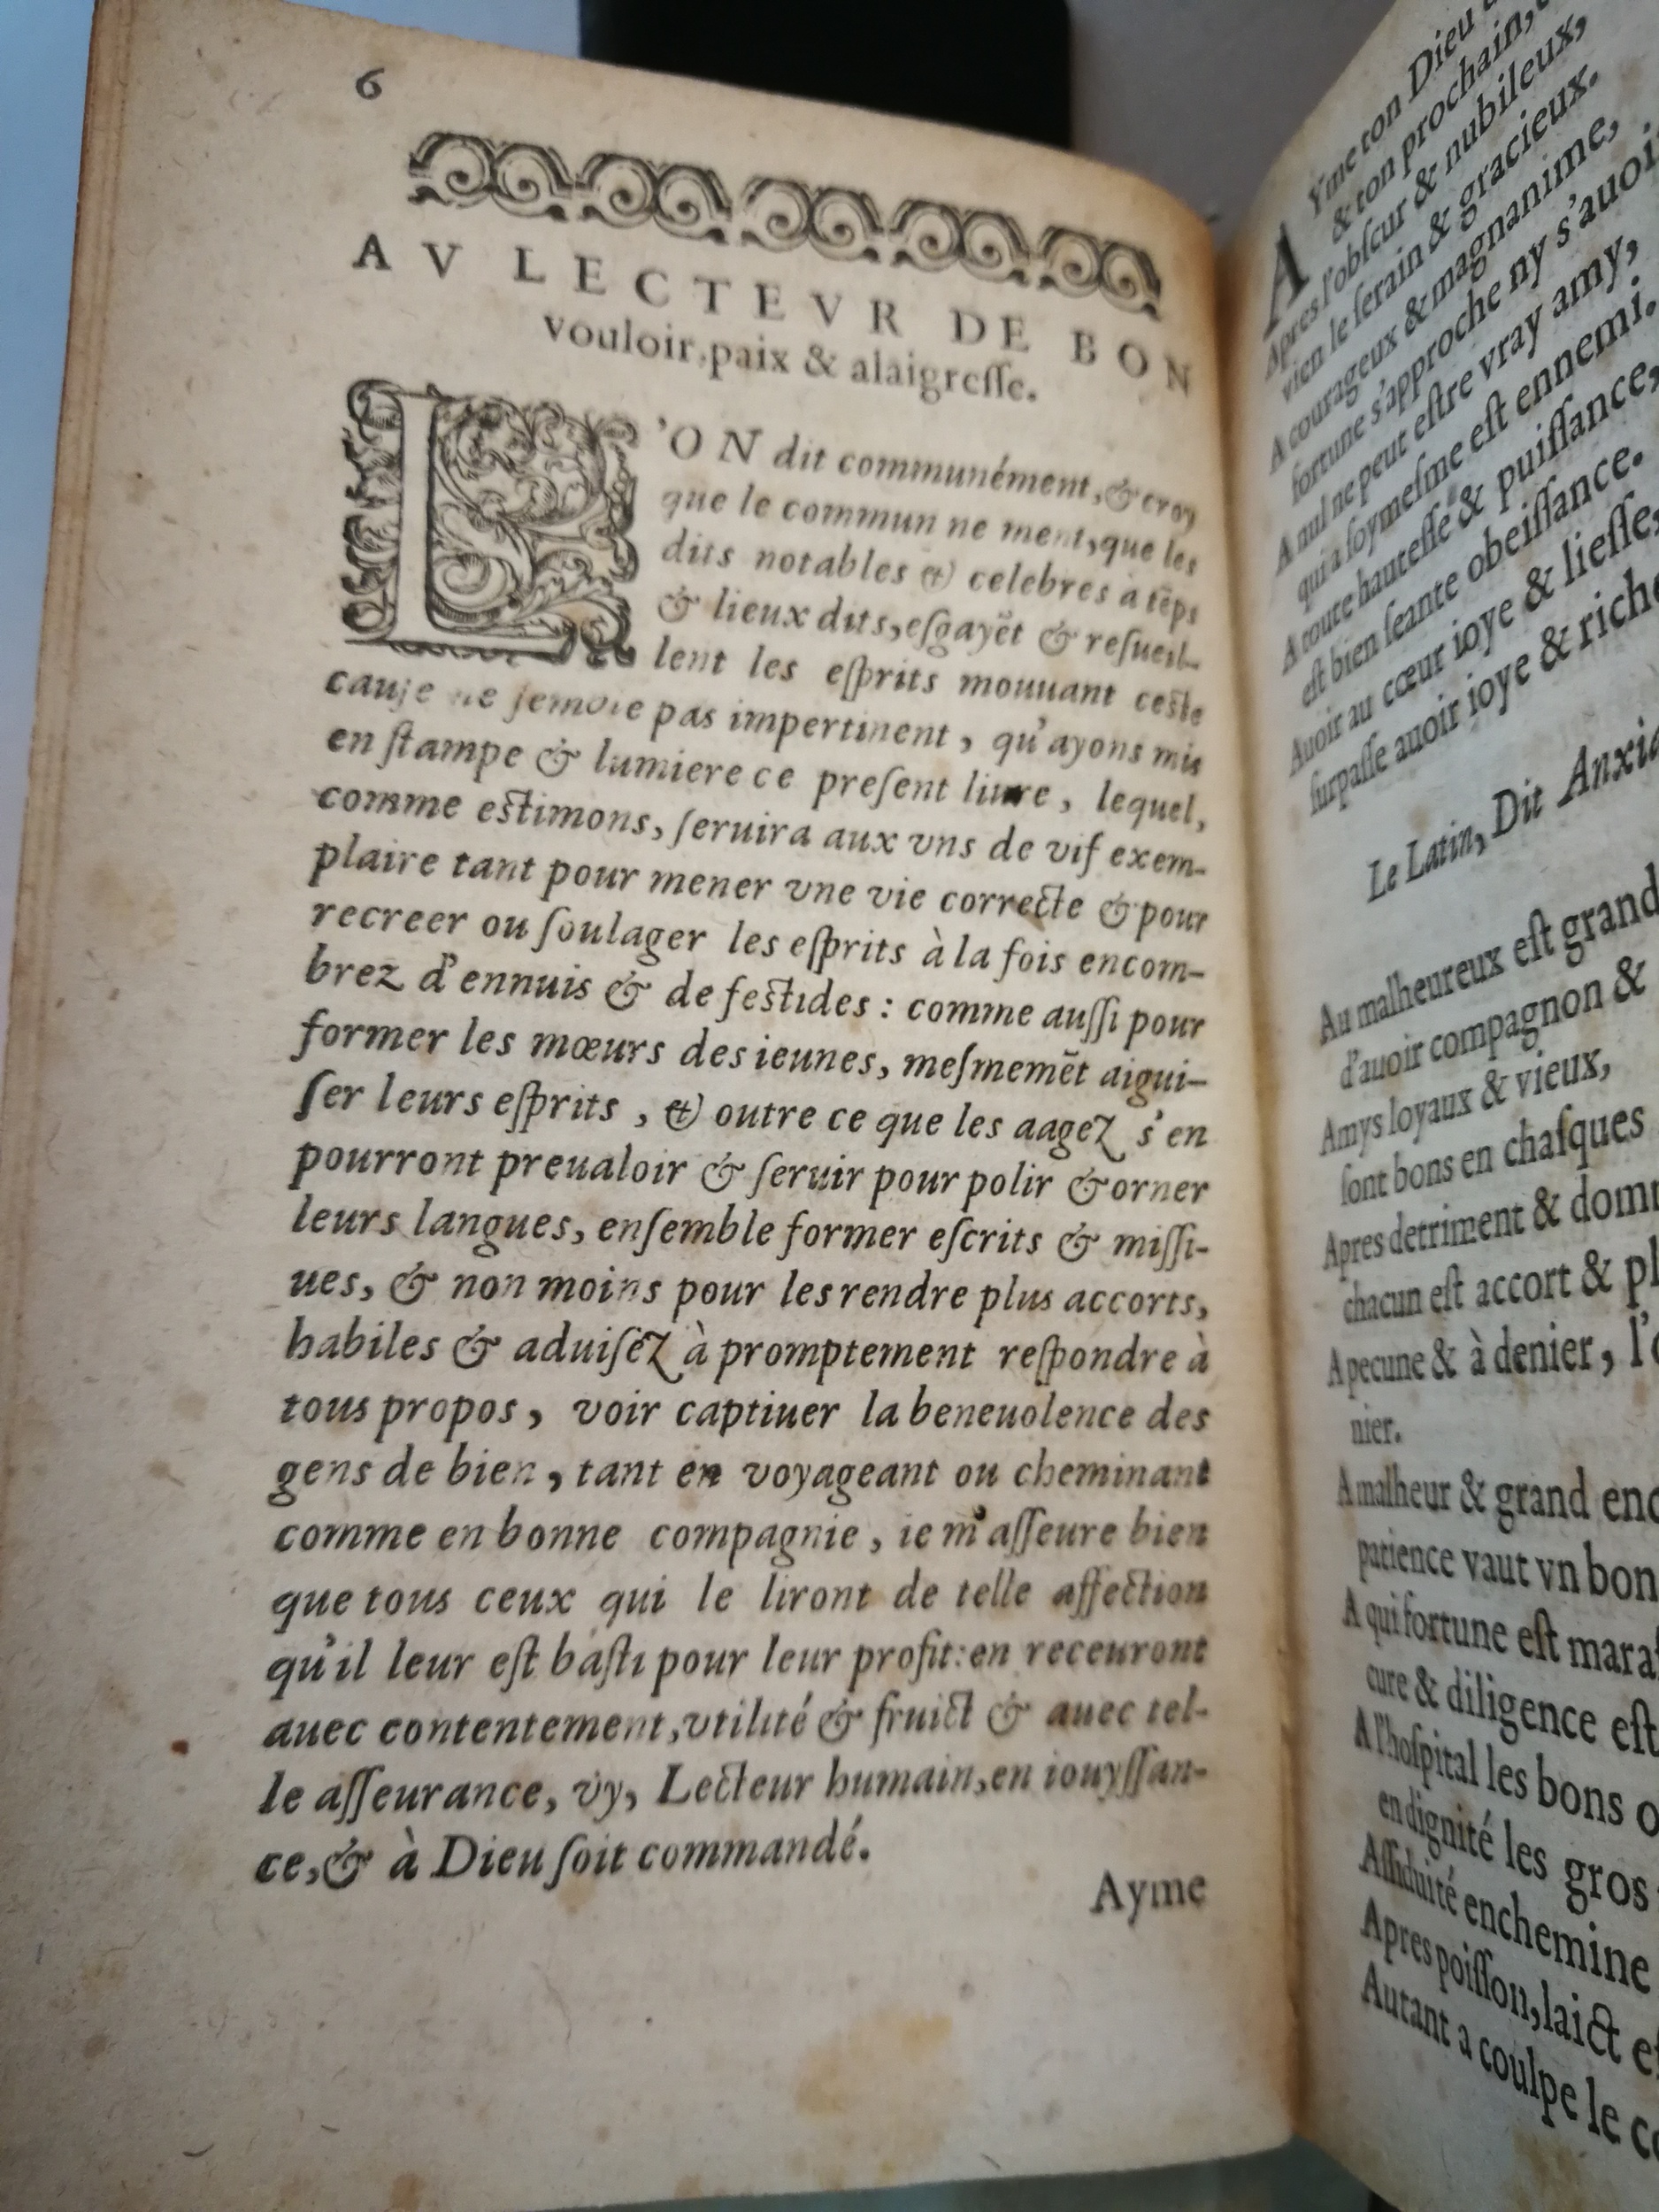 6
AV LECTEVR DE BON
vouloir, paix & alaigreſſe.
L'ON dit communément, & croy
que le commun ne ment, que les
dits notables & celebres à tẽps
& lieux dits, eſgayẽt & reſueil-
lent les eſprits mouuant ceſte
cauſe ne ſemble pas impertinent, qu'ayons mis
en ſtampe & lumiere ce preſent liure, lequel,
comme eſtimons, ſeruira aux vns de vif exem-
plaire tant pour mener vne vie correcte & pour
recreer ou ſoulager les eſprits à la fois encom-
brez d'ennuis & de feſtides : comme auſſi pour
former les mœurs des ieunes, meſmemẽt aigui-
ſer leurs eſprits, & outre ce que les aagez s'en
pourront preualoir & ſeruir pour polir & orner
leurs langues, enſemble former eſcrits & miſſi-
ues, & non moins pour les rendre plus accorts,
habiles & aduiſéz à promptement reſpondre à
tous propos, voir captiuer la beneuolence des
gens de bien, tant en voyageant ou cheminant
comme en bonne compagnie, ie m'aſſeure bien
que tous ceux qui le liront de telle affection
qu'il leur eſt baſti pour leur profit: en receuront
auec contentement, vtilité & fruict & auec tel-
le aſſeurance, vy, Lecteur humain, en iouyſſan-
ce, & à Dieu ſoit commandé.
Ayme
AYme ton Dieu
& ton prochain,
Apres l'obſcur & nubileux,
vien le ſerain & gracieux.
A courageux & magnanime,
fortune s'approche ny s'auoi
A nul ne peut eſtre vray amy,
qui a ſoymeſme eſt ennemi.
A toute hauteſſe & puiſſance,
eſt bien ſeante obeiſſance.
Auoir au cœur ioye & lieſſe,
ſurpaſſe auoir ioye & riche
Le Latin, Dit Anxia
Au malheureux eſt grand
d'auoir compagnon &
Amys loyaux & vieux,
ſont bons en chaſques
Apres detriment & dom
chacun eſt accort & pl
A pecune & à denier, l'
nier.
A malheur & grand enc
patience vaut vn bon
A qui fortune eſt mara
cure & diligence eſt
A l'hoſpital les bons o
en dignité les gros
Aſſiduité enchemine
Apres poiſſon, laict e
Autant a coulpe le c